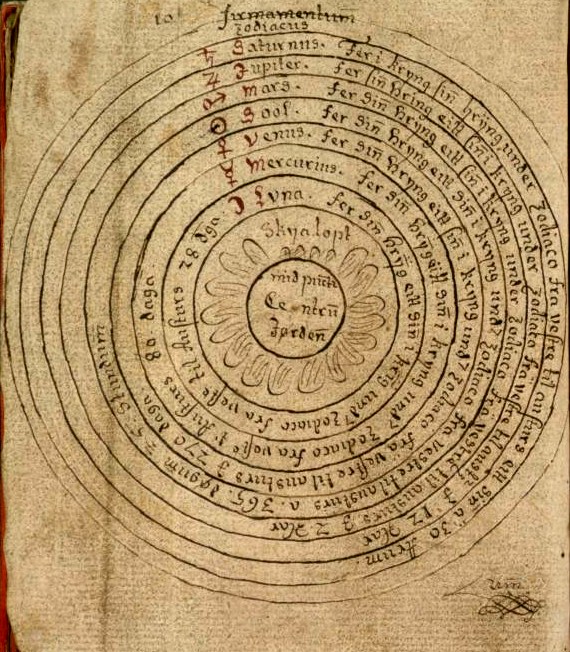 firmamentum
zodiacus
♄ Saturnus. fer i kryng sin hring under Zodiaco fra vestre til austurs eitt sin a 30 Arum.
♃ Jupiter. fer sin hring eitt sin i kryng under Zodiaco fra vestre til austurs a 12 Aar
♂ Mars. fer sin hryng eitt sin i kryng under Zodiaco fra vestre til austurs a 2 Aar
☉ Sool. fer sin hryng eitt sin i kryng und Zodiaco fra vestre til austurs a 365. døgum z 5. Stundum
♀ Venus. fer sin hryng eitt sin i kryng und Zodiaco fra vestre til austurs 270 daga
☿ Mercurius. fer sin hryg eitt sin i kryng und Zodiaco fra veste til Austurs 80 daga
☽ Lvna. fer sin hryg eitt sin i kring und Zodiaco fra veste til Austurs 28 dga
Skyalopt
mid punt
Centru
Jørden